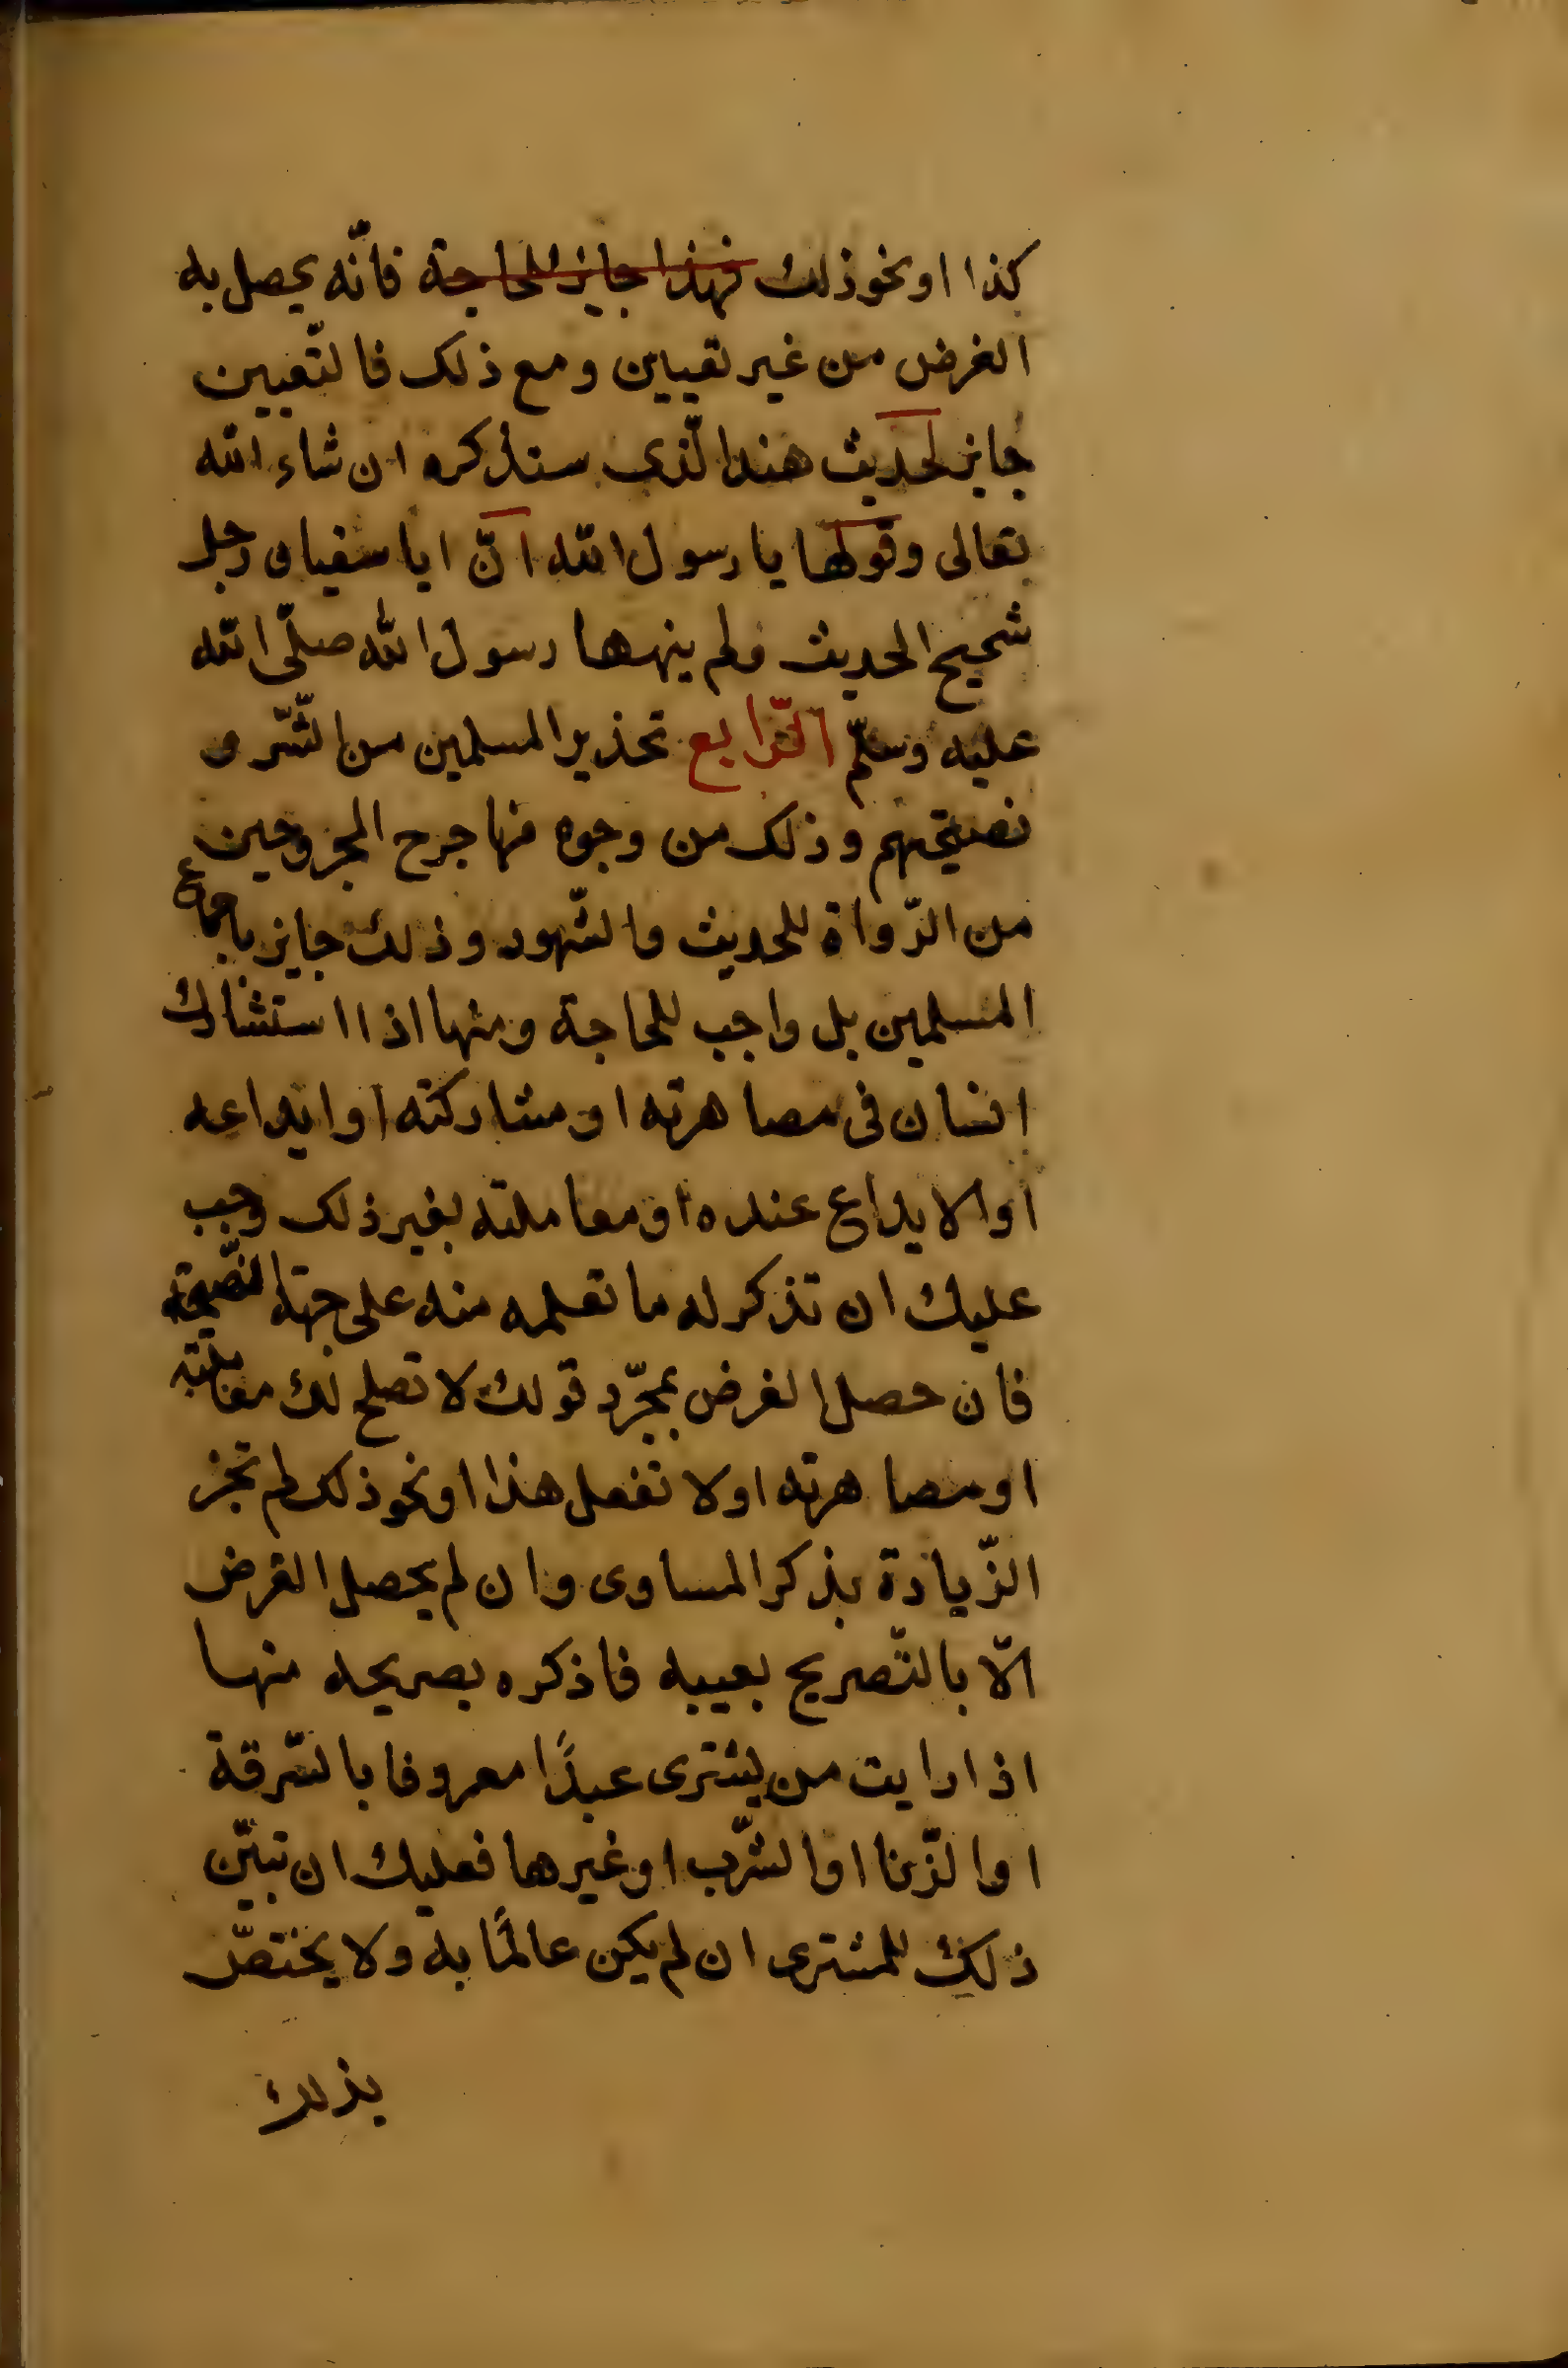 كذا او نحو ذلك فهذا جايز للحاجة فانّه يحصل به
الغرض من غير تعيين ومع ذلك فالتّعيين
جايز لحديث هند الّذى سنذكره ان شاء الله
تعالى وقولها يا رسول الله انّ ابا سفيان رجل
شحيح الحديث ولم ينهها رسول الله صلّى الله
عليه وسلّم الرّابع تحذير المسلمين من الشّرّ و
نصيحتهم وذلك من وجوه منها جرح المجروحين
من الرّواة للحديث والشّهود وذلك جايز باجماع
المسلمين بل واجب للحاجة ومنها اذا استشارك
انسان فى مصاهرته او مشاركته او ايداعه
او الايداع عنده او معاملته بغير ذلك وجب
عليك ان تذكر له ما تعلمه منه على جهة النّصيحة
فان حصل الغرض بمجرّد قولك لا تصلح لك معاملته
او مصاهرته او لا تفعل هذا او نحو ذلك لم تجز
الزّيادة بذكر المساوى وان لم يحصل الغرض
الّا بالتّصريح بعيبه فاذكره بصريحه منها
اذا رايت من يشترى عبدًا معروفا بالسّرقة
او الزّنا او الشّرب او غيرها فعليك ان تبيّن
ذلك للمشترى ان لم يكن عالمًا به ولا يختصّ
بذلك